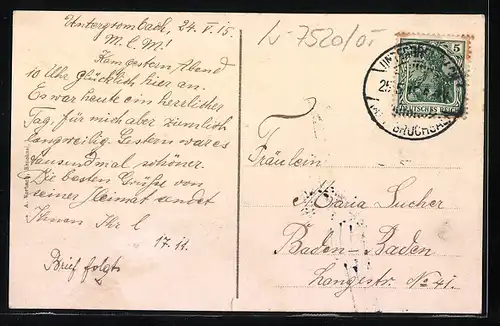 Untergrombach, 24. V. 15.
M. l. M!
Kam gestern Abend
10 Uhr glücklich hier an.
Es war heute ein herrlicher
Tag, für mich aber ziemlich
langweilig. Gestern war es
tausendmal schöner.
Die besten Grüße von
seiner Heimat sendet
Ihnen Ihr
17. 11.
Brief folgt
Lv-7520/05
5
DEUTSCHES REICH
BRUCHSAL
Fräulein
Maria Sucher
Baden-Baden
Langestr. No 41.